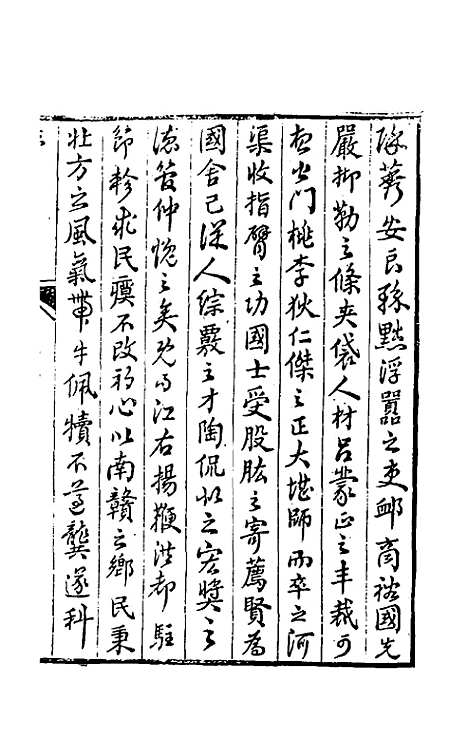 除莠安良孫黙浮囂之吏邺商裕國先
嚴抑勒之條夾袋人材呂蒙正之丰裁可
想公門桃李狄仁傑之正大堪師而卒之河
渠收指臂之功國士受股肱之寄薦賢為
國舍己從人綜覈之才陶侃似之宏獎之
德管仲愧之矣既而江右揚鞭洪都駐
節軫求民瘼不改初心以南贛之鄉民秉
壯方之風氣帶牛佩犢不遵龔遂科